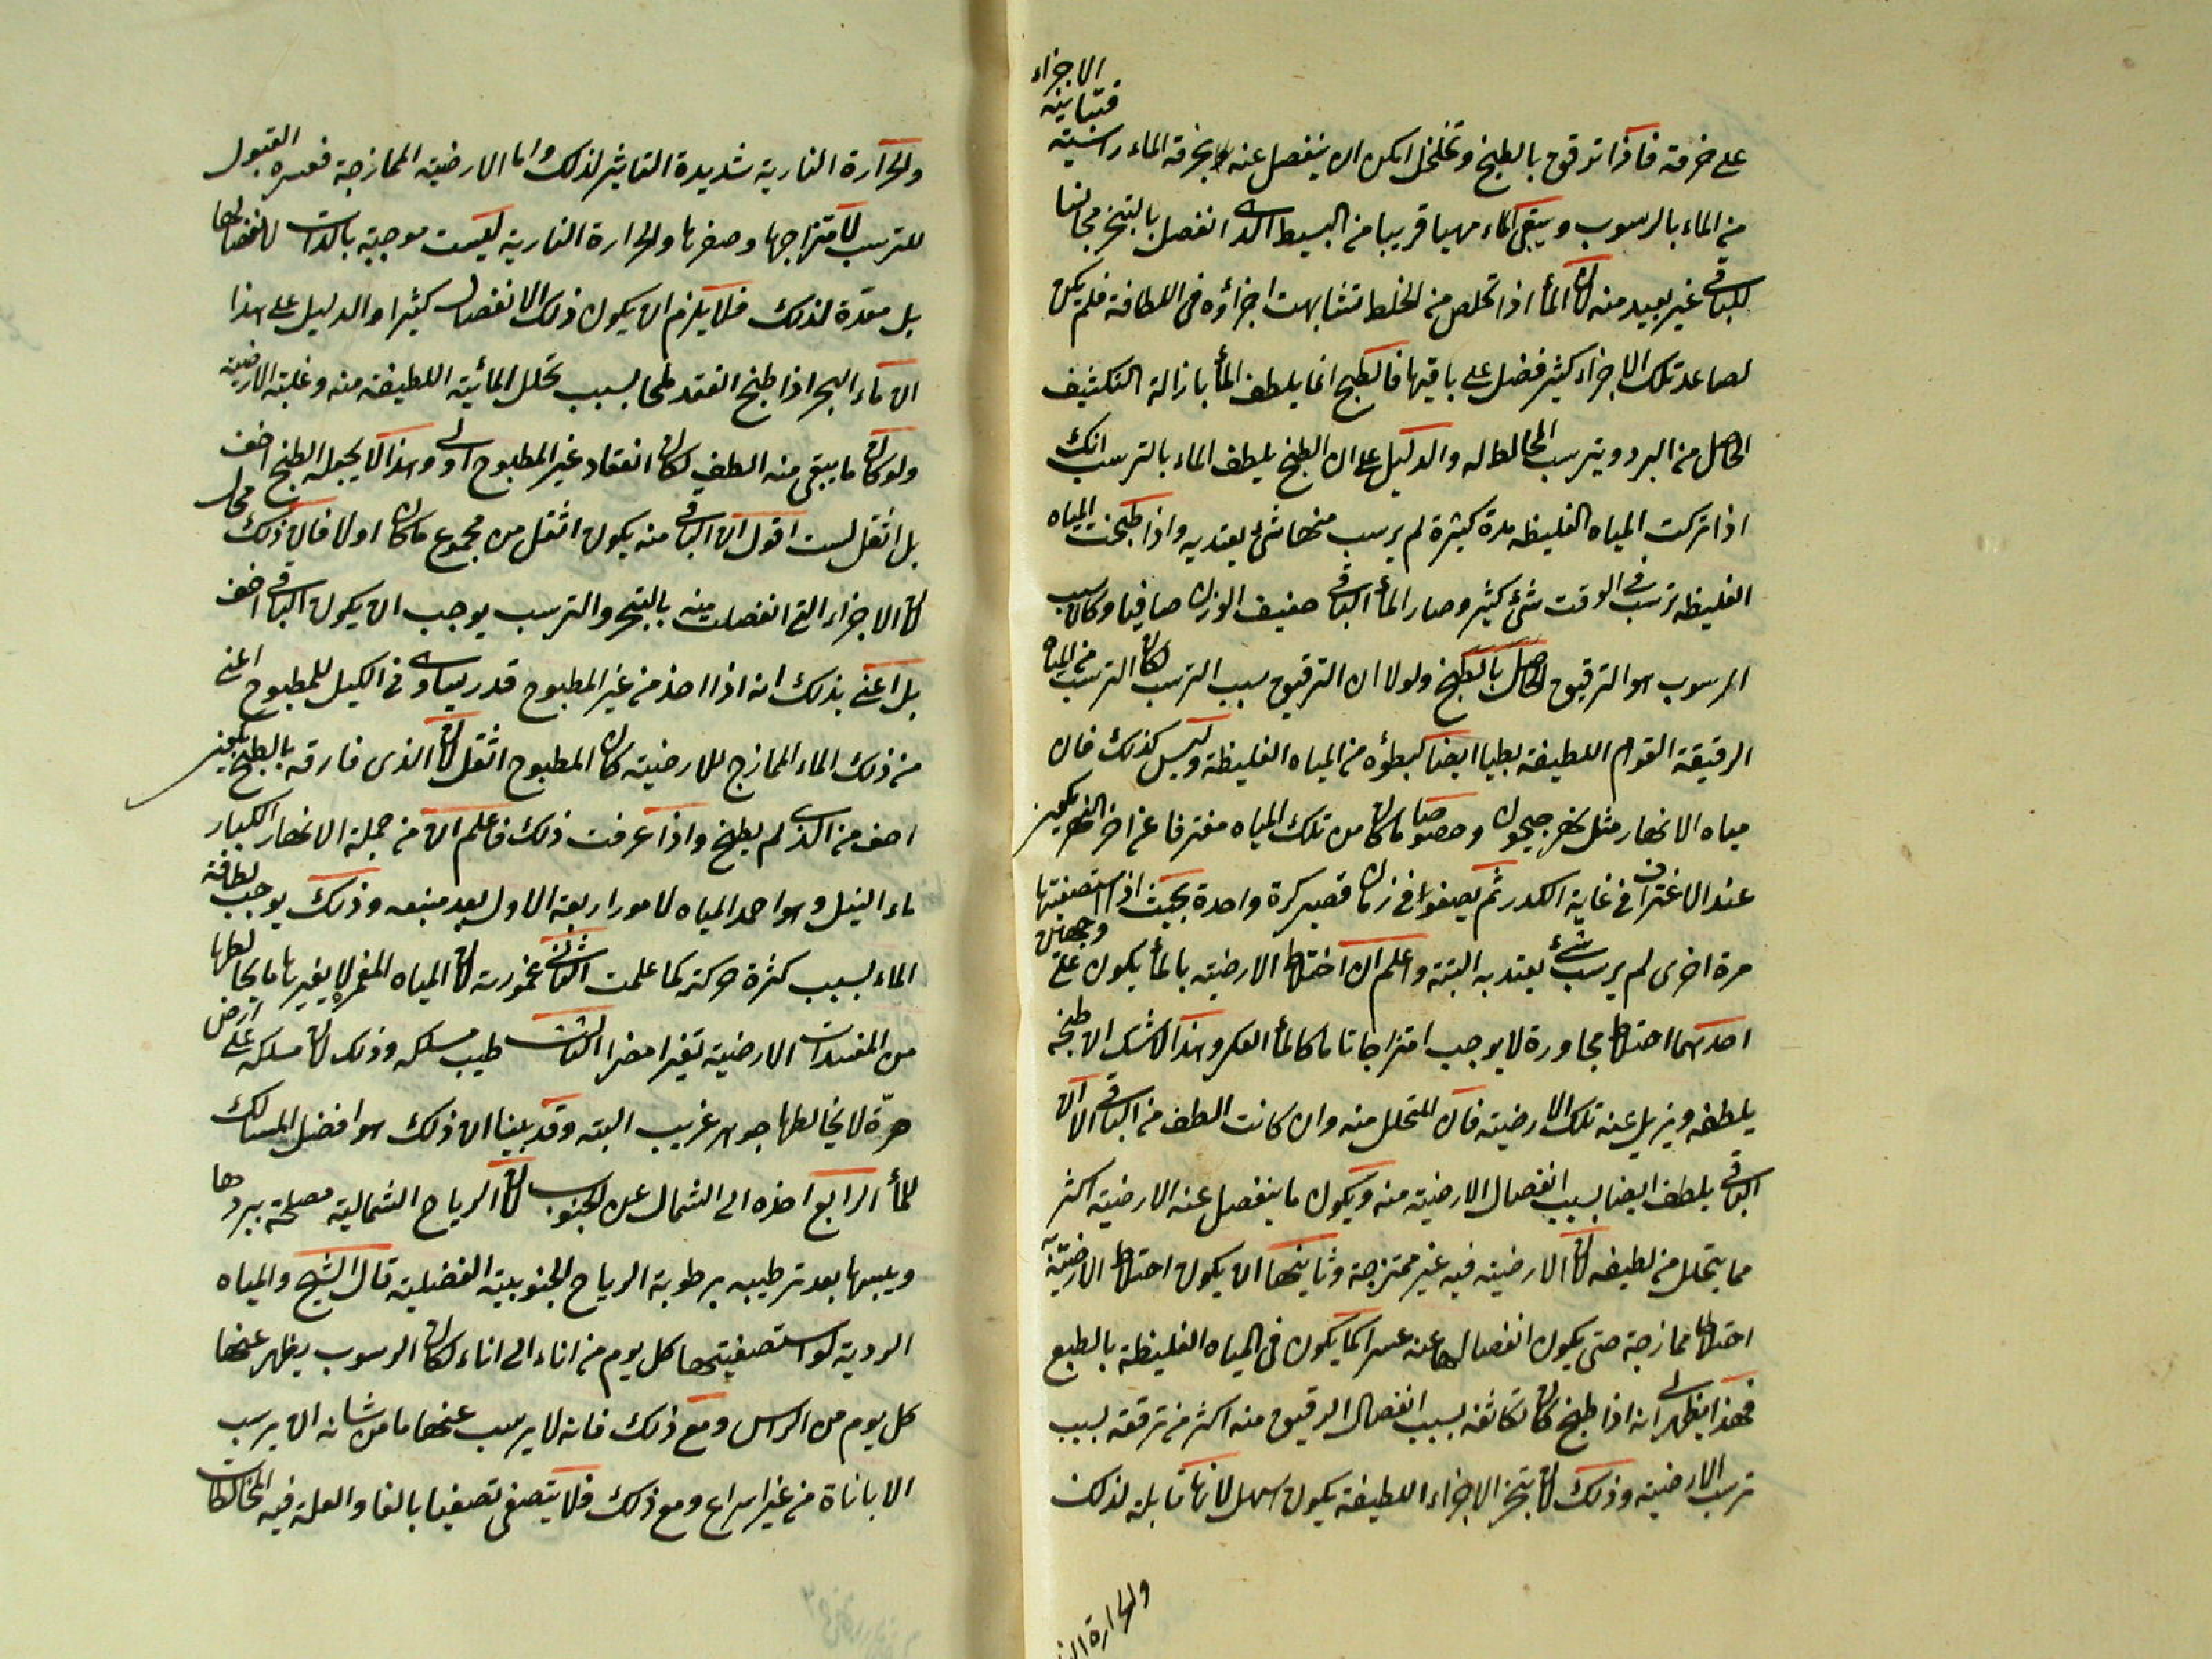 الاجزاء
فتباينه
على خرقه فاذا ترقق بالطبخ وتخلخل امكن ان ينفصل عنه بخرقه الماء راسبة
من الماء بالرسوب ويبقى الماء مهيا قريبا من البسيط الذى انفصل بالتبخر مجانسا
للباقى غير بعيد منه لان الماء اذا تخلص من الخلط تشابهت اجزاؤه فى اللطافة فلم يكن
لصاعد تلك الاجزاء كثير فضل على باقيها فالطبخ انما يلطف الماء بازالة التكثيف
الحاصل من البرد ويترسب المخالط له والدليل على ان الطبخ يلطف الماء بالترسب انك
اذا تركت المياه الغليظه مدة كثيرة لم يرسب منها شئ يعتد به واذا طبخت المياه
الغليظه ترسب فى الوقت شئ كثير وصار الماء الباقى خفيف الوزن صافيا وكان سبب
الرسوب هو الترقيق الحاصل بالطبخ ولولا ان الترقيق سبب الترسب لكان الترسب من المياه
الرقيقة القوام اللطيفة بطيا ايضا كبطؤه من المياه الغليظة وليس كذلك فان
مياه الانهار مثل نهر جيحون وخصوصا ما كان من تلك المياه مغترفا من اخر النهر يكون
عند الاغتراف فى غاية الكدر ثم يصفوا فى زمان قصير كرة واحدة بحيث اذا استصفيتها
مرة اخرى لم يرسب شئ يعتد به البتة واعلم ان اختلاط الارضية بالماء يكون على وجهين
احدهما اختلاط مجاورة لا يوجب امتزاجا تاما كالماء العكر وهذا لا شك ان طبخه
يلطفه ويزيل عنه تلك الارضية فان المتحلل منه وان كانت الطف من الباقى الا ان
الباقى يلطف ايضا بسبب انفصال الارضية منه ويكون ما ينفصل عنه الارضية اكثر
مما يتحلل من لطيفه لان الارضية فيه غير ممتزجة وثانيها ان يكون اختلاط الارضية به
اختلاط ممازجة حتى يكون انفصالها عنه عسرا كما يكون فى المياه الغليظة بالطبع
فهذا يظهر لى انه اذا طبخ كان تكاثفه بسبب انفصال الرقيق منه اكثر من ترققه بسبب
ترسب الارضية وذلك لان تبخر الاجزاء اللطيفة يكون اسهل لانها قابلة لذلك
والحرارة النا
والحرارة النارية شديدة التاثير لذلك واما الارضية الممازجة فعسره القبول
للترسب لامتزاجها وصغرها والحرارة النارية ليست موجبة بالذات لانفصالها
بل معدة لذلك فلا يلزم ان يكون ذلك الانفصال كثيرا والدليل على هذا
ان ماء البحر اذا طبخ انعقد ملحا بسبب تحلل المائية اللطيفة منه وغلبة الارضية
ولو كان ما يبقى منه الطف لكان انعقاد غير المطبوخ اولى وهذا لا يجعله الطبخ اخف
بل اثقل لست اقول ان الباقى منه يكون اثقل من مجموع ما كان اولا فان ذلك محال
لان الاجزاء التى انفصلت منه بالتبخر والترسب يوجب ان يكون الباقى اخف
بل اعنى بذلك انه اذا اخذ من غير المطبوخ قدر يساوى فى الكيل للمطبوخ اعنى
من ذلك الماء الممازج للارضية كان المطبوخ اثقل لان الذى فارقه بالطبخ يكون
اخف من الذى لم يطبخ واذا عرفت ذلك فاعلم ان من جملة الانهار الكبار
ماء النيل وهو احمد المياه لامور اربعة الاول بعد منبعه وذلك يوجب لطافة
الماء بسبب كثرة حركته كما علمت الثانى غمورته لان المياه الغمر لا يغيرها ما يخالطها
من المفسدات الارضية تغيرا مضرا الثالث طيب مسلكه وذلك لان مسلكه على ارض
حرّة لا يخالطها جوهر غريب البته وقد بينا ان ذلك هو افضل المسالك
للماء الرابع اخذه الى الشمال عن الجنوب لان الرياح الشمالية مصلحة ببردها
ويبسها بعد ترطيبه برطوبة الرياح الجنوبية الفضلية قال الشيخ والمياه
الردية لو استصفيتها كل يوم من اناء الى اناء لكان الرسوب يظهر عنها
كل يوم من الراس ومع ذلك فانه لا يرسب عنها ما من شانه ان يرسب
الا باناة من غير اسراع ومع ذلك فلا يتصفى تصفيا بالغا والعلة فيه المخالطات